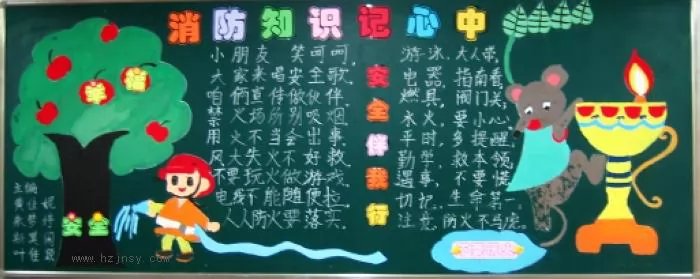 消防知识记心中
小朋友 笑呵呵，
大家来唱安全歌
咱俩宣传做伙伴
禁火场所别吸烟
用火不当会出事
风大失火不好救
不要玩火做游戏
电线不能随便拉
人人防火要落实
安全伴我行
游泳，大人带，
电器，指南看
燃具，阀门关
水火，要小心
平时，多提醒
勤学，救本领
遇事，不要慌
切记，生命第一
注意，防火不马虎
幸福
安全
主编
www.hzjnsy.com